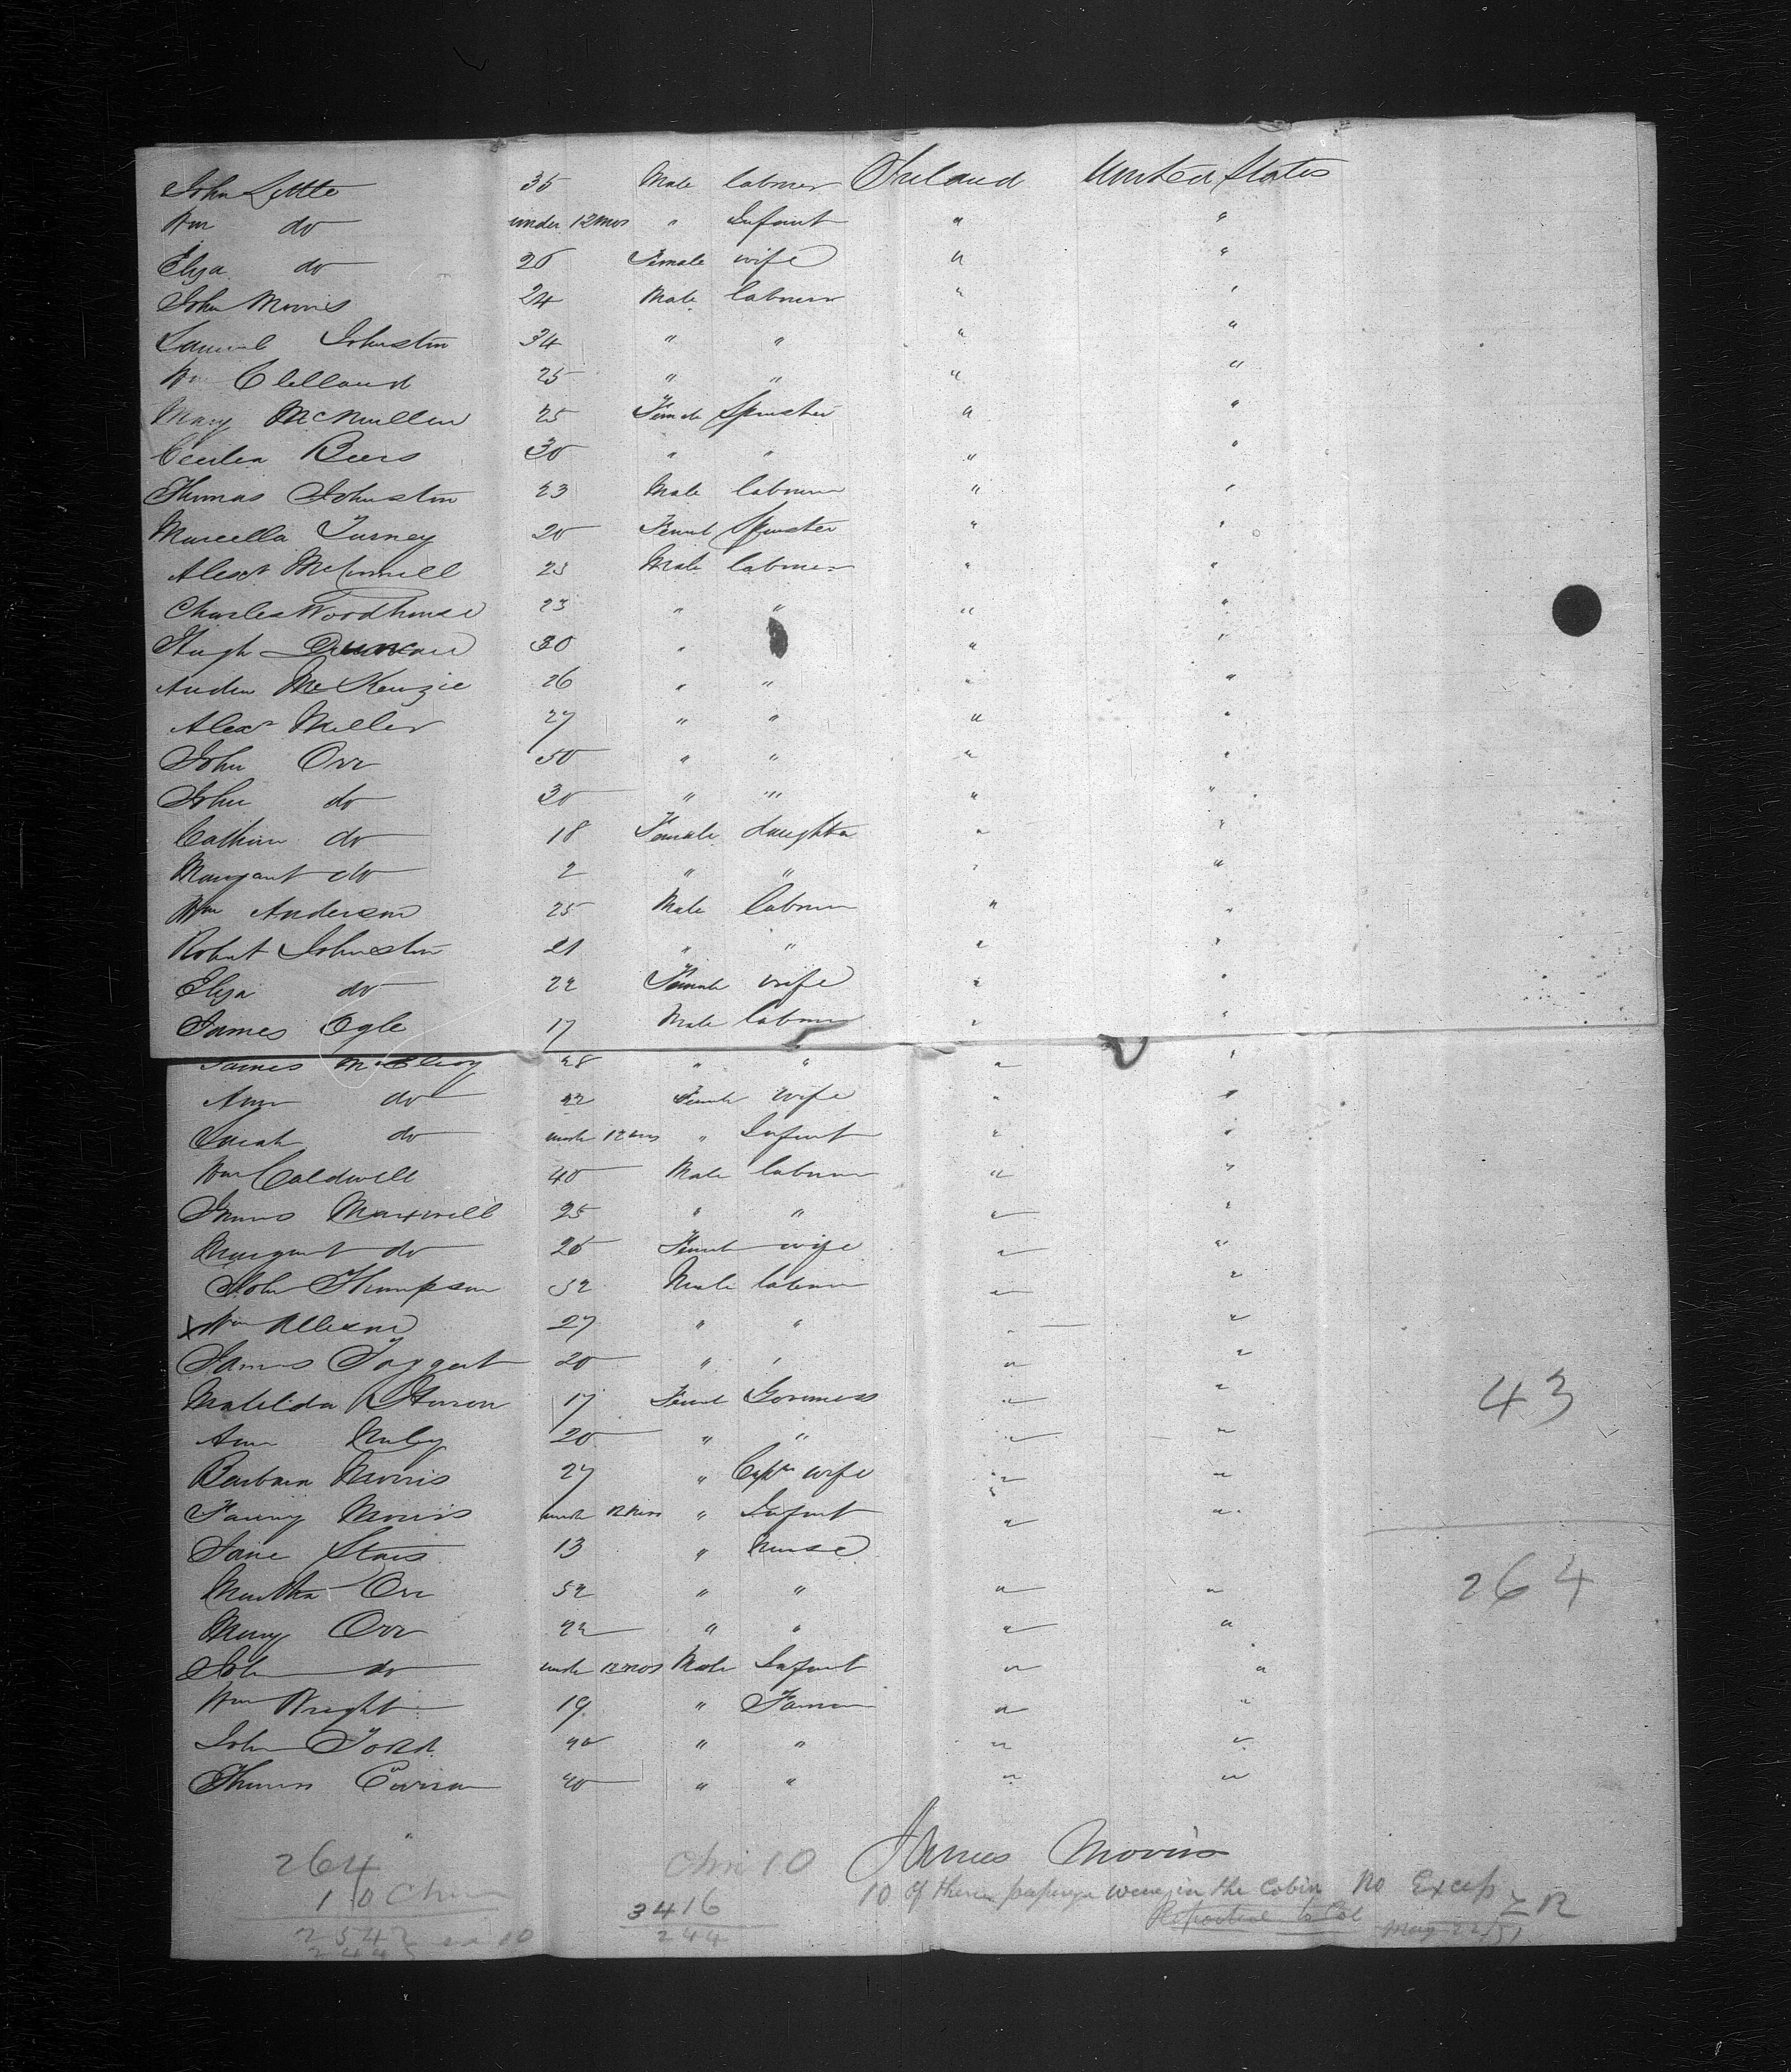 John Little 35 Male labourer Ireland United States
Wm do under 12 mos " Infant " "
Eliza do 26 Female wife " "
John Morris 24 Male labourer " "
Samuel Johnston 34 " " " "
Wm Clelland 25 " " " "
Mary McMullen 25 Female Spinster " "
Cecilia Beers 30 " " " "
Thomas Johnston 23 Male labourer " "
Marcella Turney 20 Femal Spinster " "
Alexr McConnell 23 Male labourer " "
Charles Woodhouse 23 " " " "
Hugh Duncan 30 " " " "
Andrew McKenzie 26 " " " "
Alexr Miller 27 " " " "
John Orr 50 " " " "
John do 30 " " " "
Catherine do 18 Female daughter " "
Margaret do 2 " " " "
Wm Anderson 25 Male labourer " "
Robert Johnston 21 " " " "
Eliza do 22 Female wife " "
James Ogle 17 Male labourer " "
James McElroy 28 " " " "
Ann do 22 Female wife " "
Sarah do under 12 mos " Infant " "
Wm Caldwell 40 Male labourer " "
James Maxwell 25 " " " "
Margaret do 26 Female wife " "
John Thompson 52 Male labourer " "
x Wm 27 " " " "
James Taggert 20 " " " "
Matilda 17 Female Governess " "
43
Ann 20 " " " "
Barbara Morris 27 " Capn wife " "
Fanny Morris under 12 mos " Infant " "
Jane 13 " Nurse
Martha Orr 52 " " " "
264
Mary Orr 22 " " " "
John do under 12 mos Male Infant " "
Wm Wright 19 " Farmer " "
John 40 " " " "
Thomas 40 " " " "
James Morris
264
10
10
3416
244
10 of these passengers were in the Cabin No Excep
Reported to Col
May 22/51